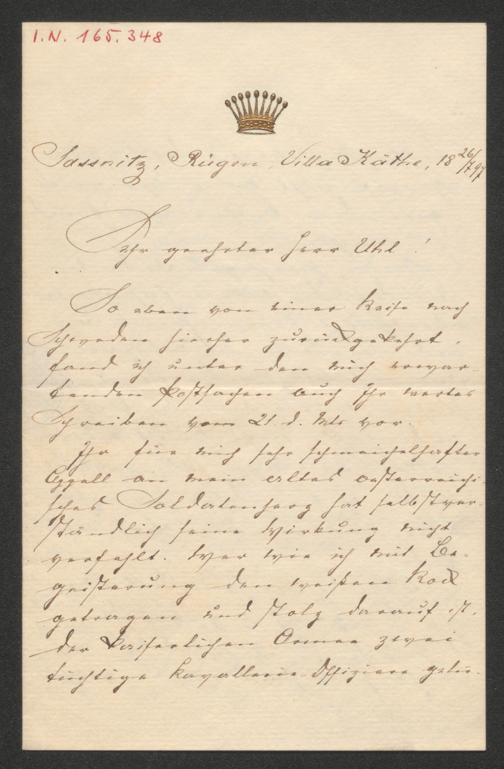 I.N. 165.348
Sassnitz, Rügen, Villa Käthe, 18 26/7 97
Sehr geehrter Herr Uhl!
So eben von einer Reise nach
Schweden hierher zurückgekehrt,
fand ich unter den mich erwar-
tenden Postsachen auch Ihr wertes
Schreiben vom 21. d. Mts vor.
Ihr für mich sehr schmeichelhafter
Appell an mein altes oesterreichi-
sches Soldatenherz hat selbstver-
ständlich seine Wirkung nicht
verfehlt. Wer wie ich mit Be-
geisterung den weißen Rock
getragen und stolz darauf ist,
der Kaiserlichen Armee zwei
tüchtige Kavallerie Offiziere gelie-